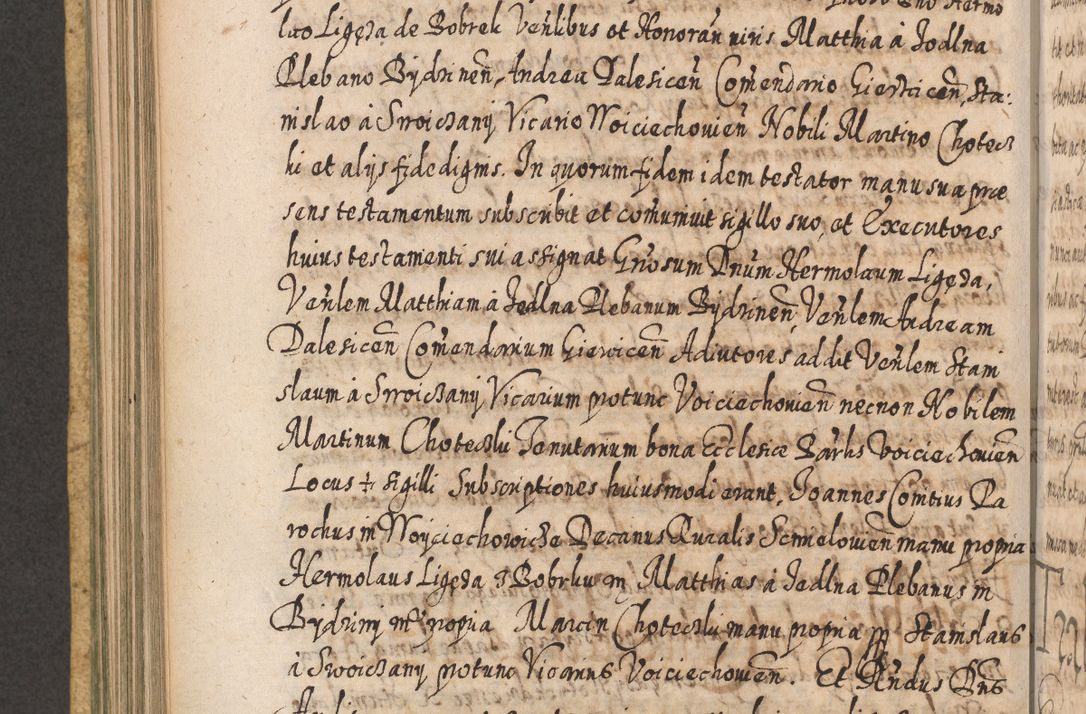 lao Ligęza de Bobrek Venlibus et Honoran viris Matthia à Jedlna
Plebano Bydzinen, Andrea Dalesicen Comendario Gierzicen, Sta:
nislao à Swoiczany Vicario Woiciechovien Nobili Martino Choteck
ki et alijs fide dignis. In quorum fidem idem testator manu sua præ
sens testamentum subscribit et comunivit sigillo suo, et Executores
huius testamenti sui assignat Gnosum Dnum Hermolaum Ligęza,
Venlem Matthiam à Jedlna Plebanum Bydzinen, Venlem Andream
Dalesicen Comendarium Giericicen Adiutores addit Venlem Stani
slaum à Swoiczany Vicarium protunc Voiciechovien necnon Nobilem
Martinum Choteczki Tenutarium bona Ecclesiæ Parhs Voiciechovien
Locus ‡ sigilli Subscriptiones huiusmodi erant, Joannes Comitius Pa
rochus in Woyciechowicze Decanus Ruralis Scmelovien manu propria
Hermolaus Ligęza z Bobrku m Matthias à Jedlna Plebanus in
Bydziny propria Marcin Choteczki manu propria Stanislaus
à Swoiczany protunc Vicarius Voiciechovien. Et Rndus Dns